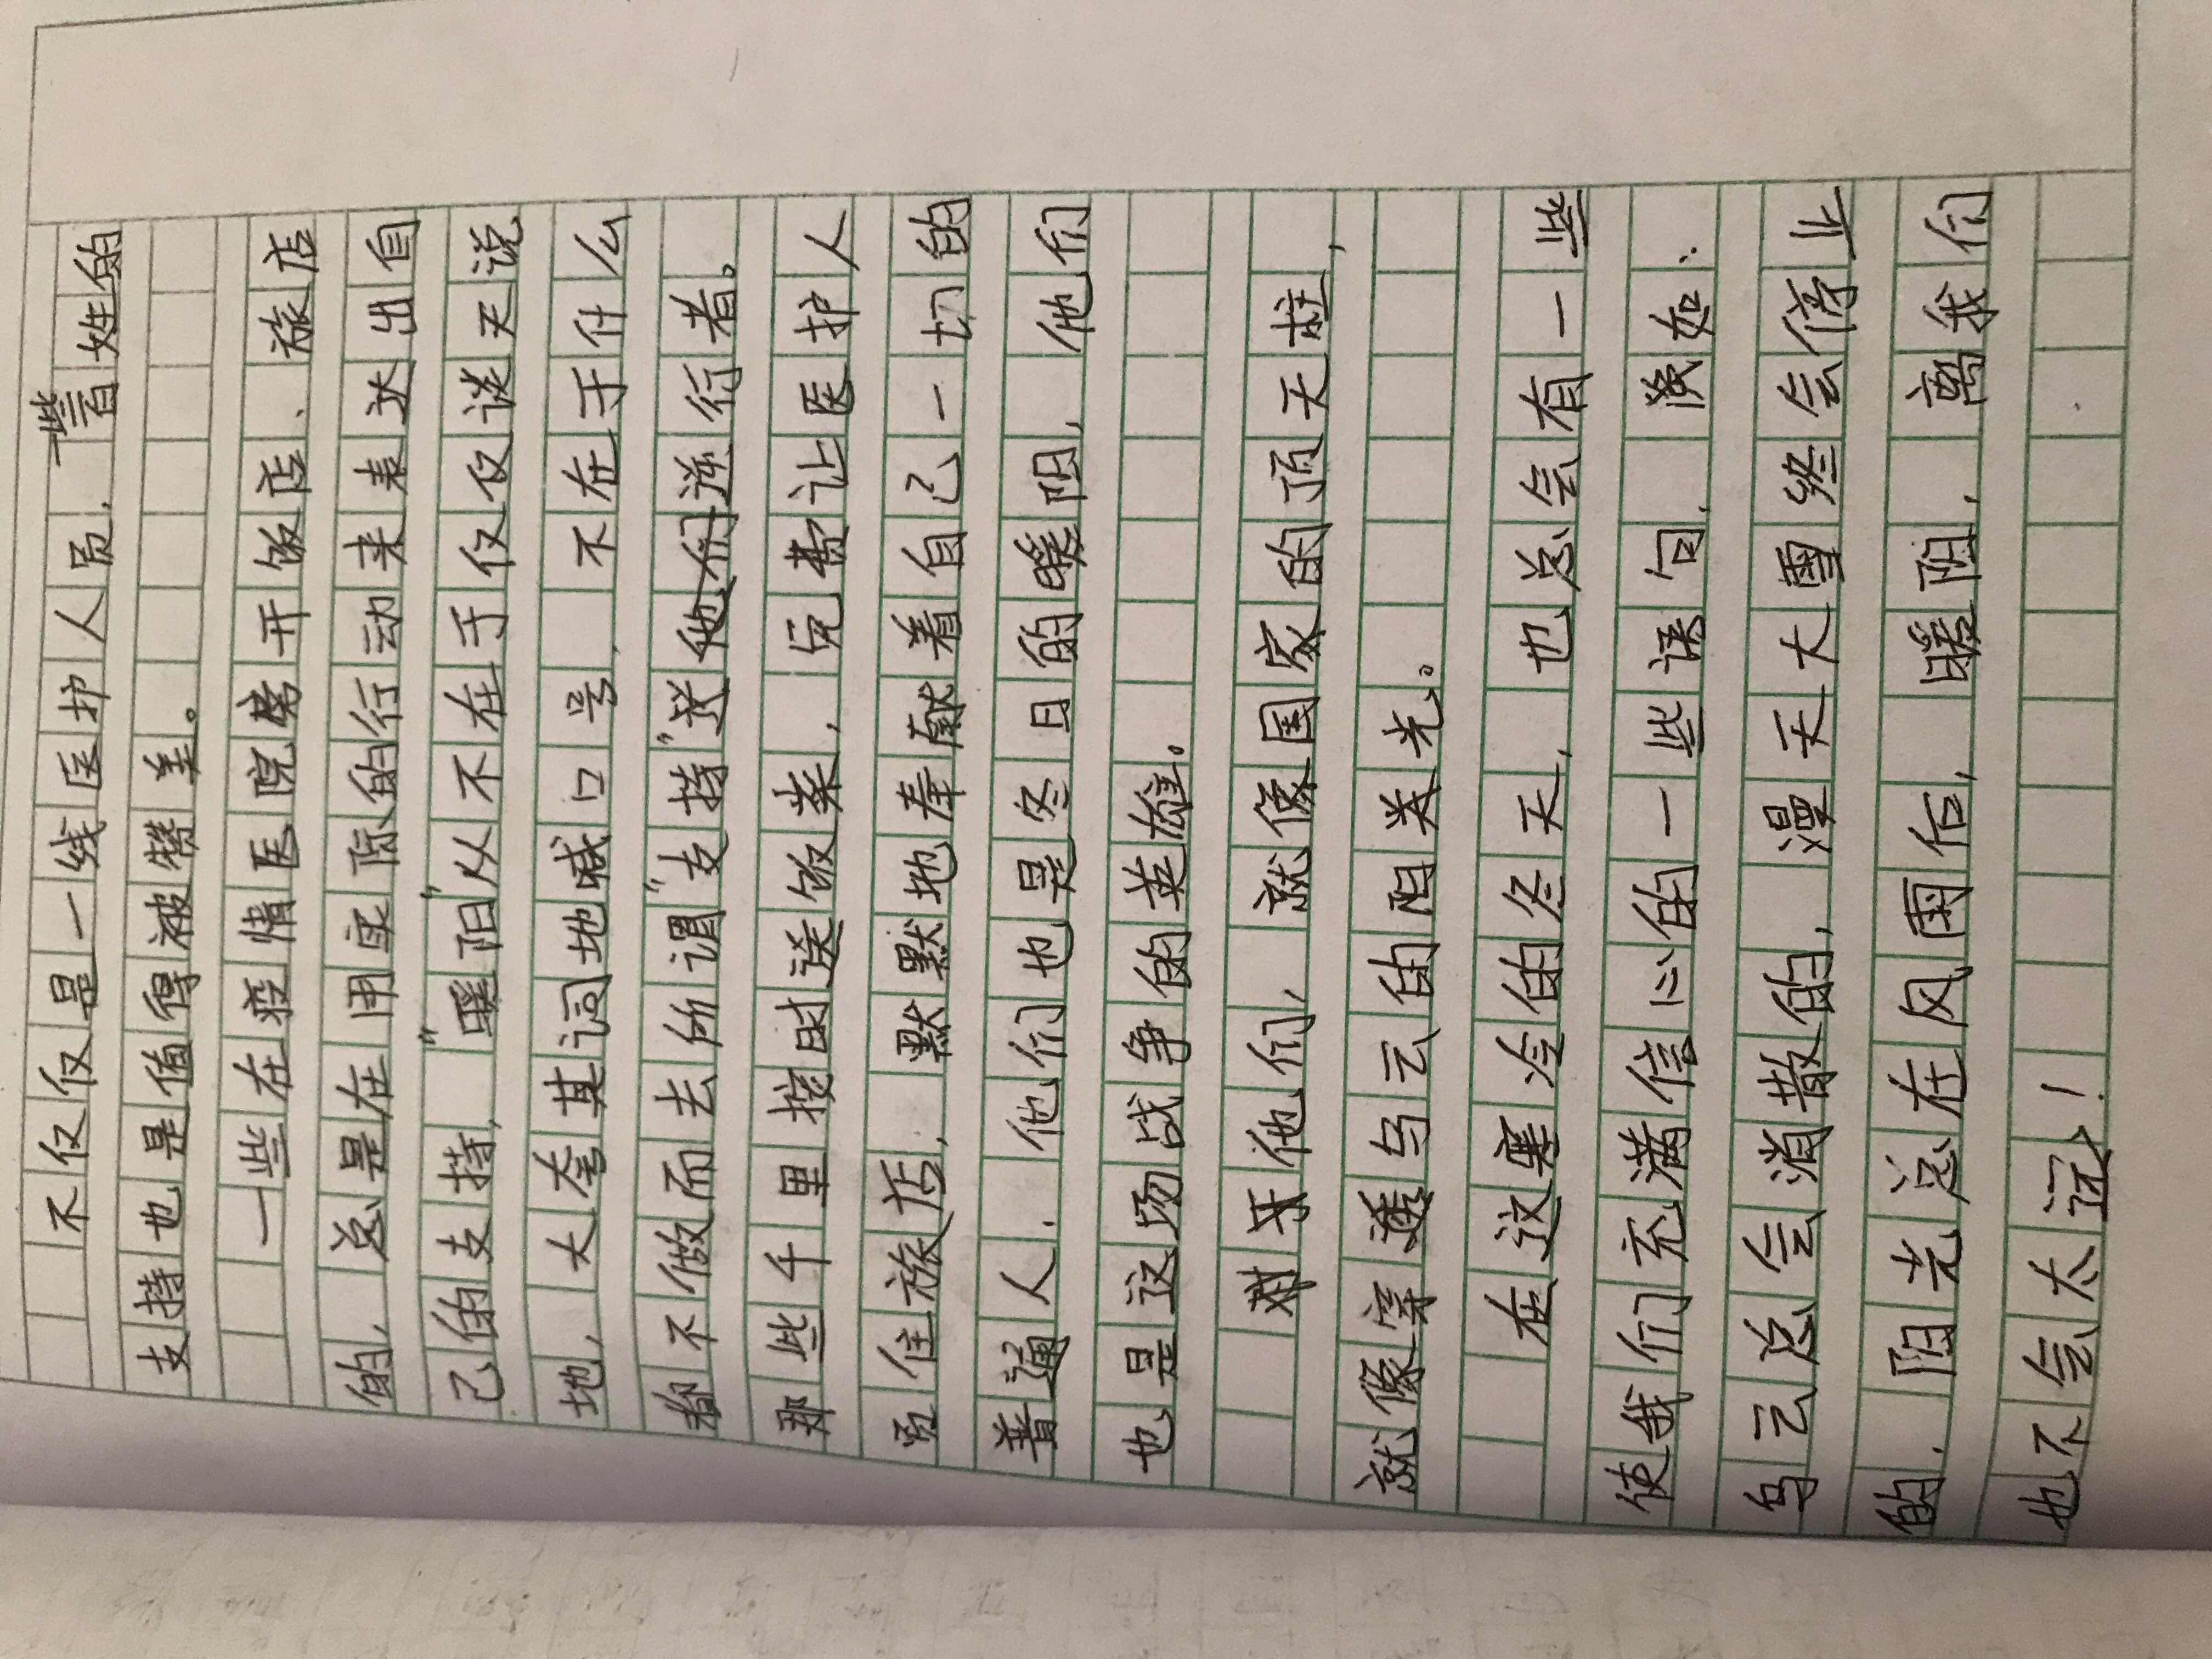 不仅仅是一线医护人员，一些百姓的
支持也是值得被赞美。
一些在疫情医院旁开饭店、旅店
的，总是在用实际的行动来表达出自
己的支持，“暖阳”从不在于仅仅谈天说
地，大夸其词地喊口号，不在于什么
都不做而去所谓“支持”送他们逆行者。
那些千里按时送饭菜，免费让医护人
员住旅店，默默地奉献着自己一切的
普通人，他们也是冬日的暖阳，他们
也是这场战争的英雄。
对于他们，就像国家的顶天柱，
就像穿透乌云的阳关光。
在这寒冷的冬天，也总会有一些
使我们充满信心的一些语句，譬如：
乌云总会消散的，漫天大雪终会停止
的，阳光总在风雨后，暖阳，离我们
也不会太远！